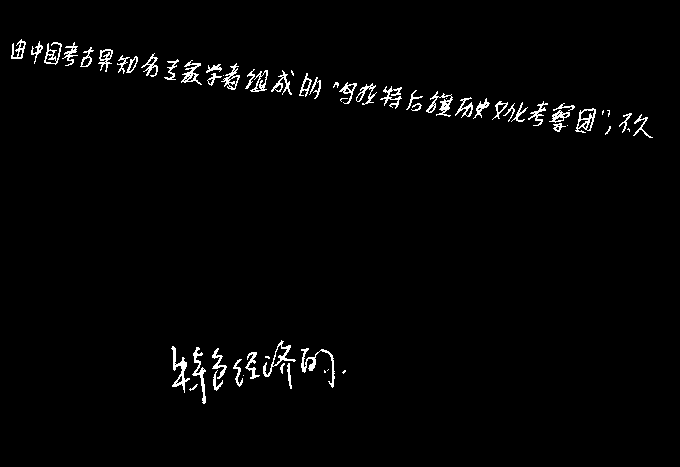 由中国考古界知名专家学者组成的“乌拉特后旗历史文化考察团”,不久
特色经济的.